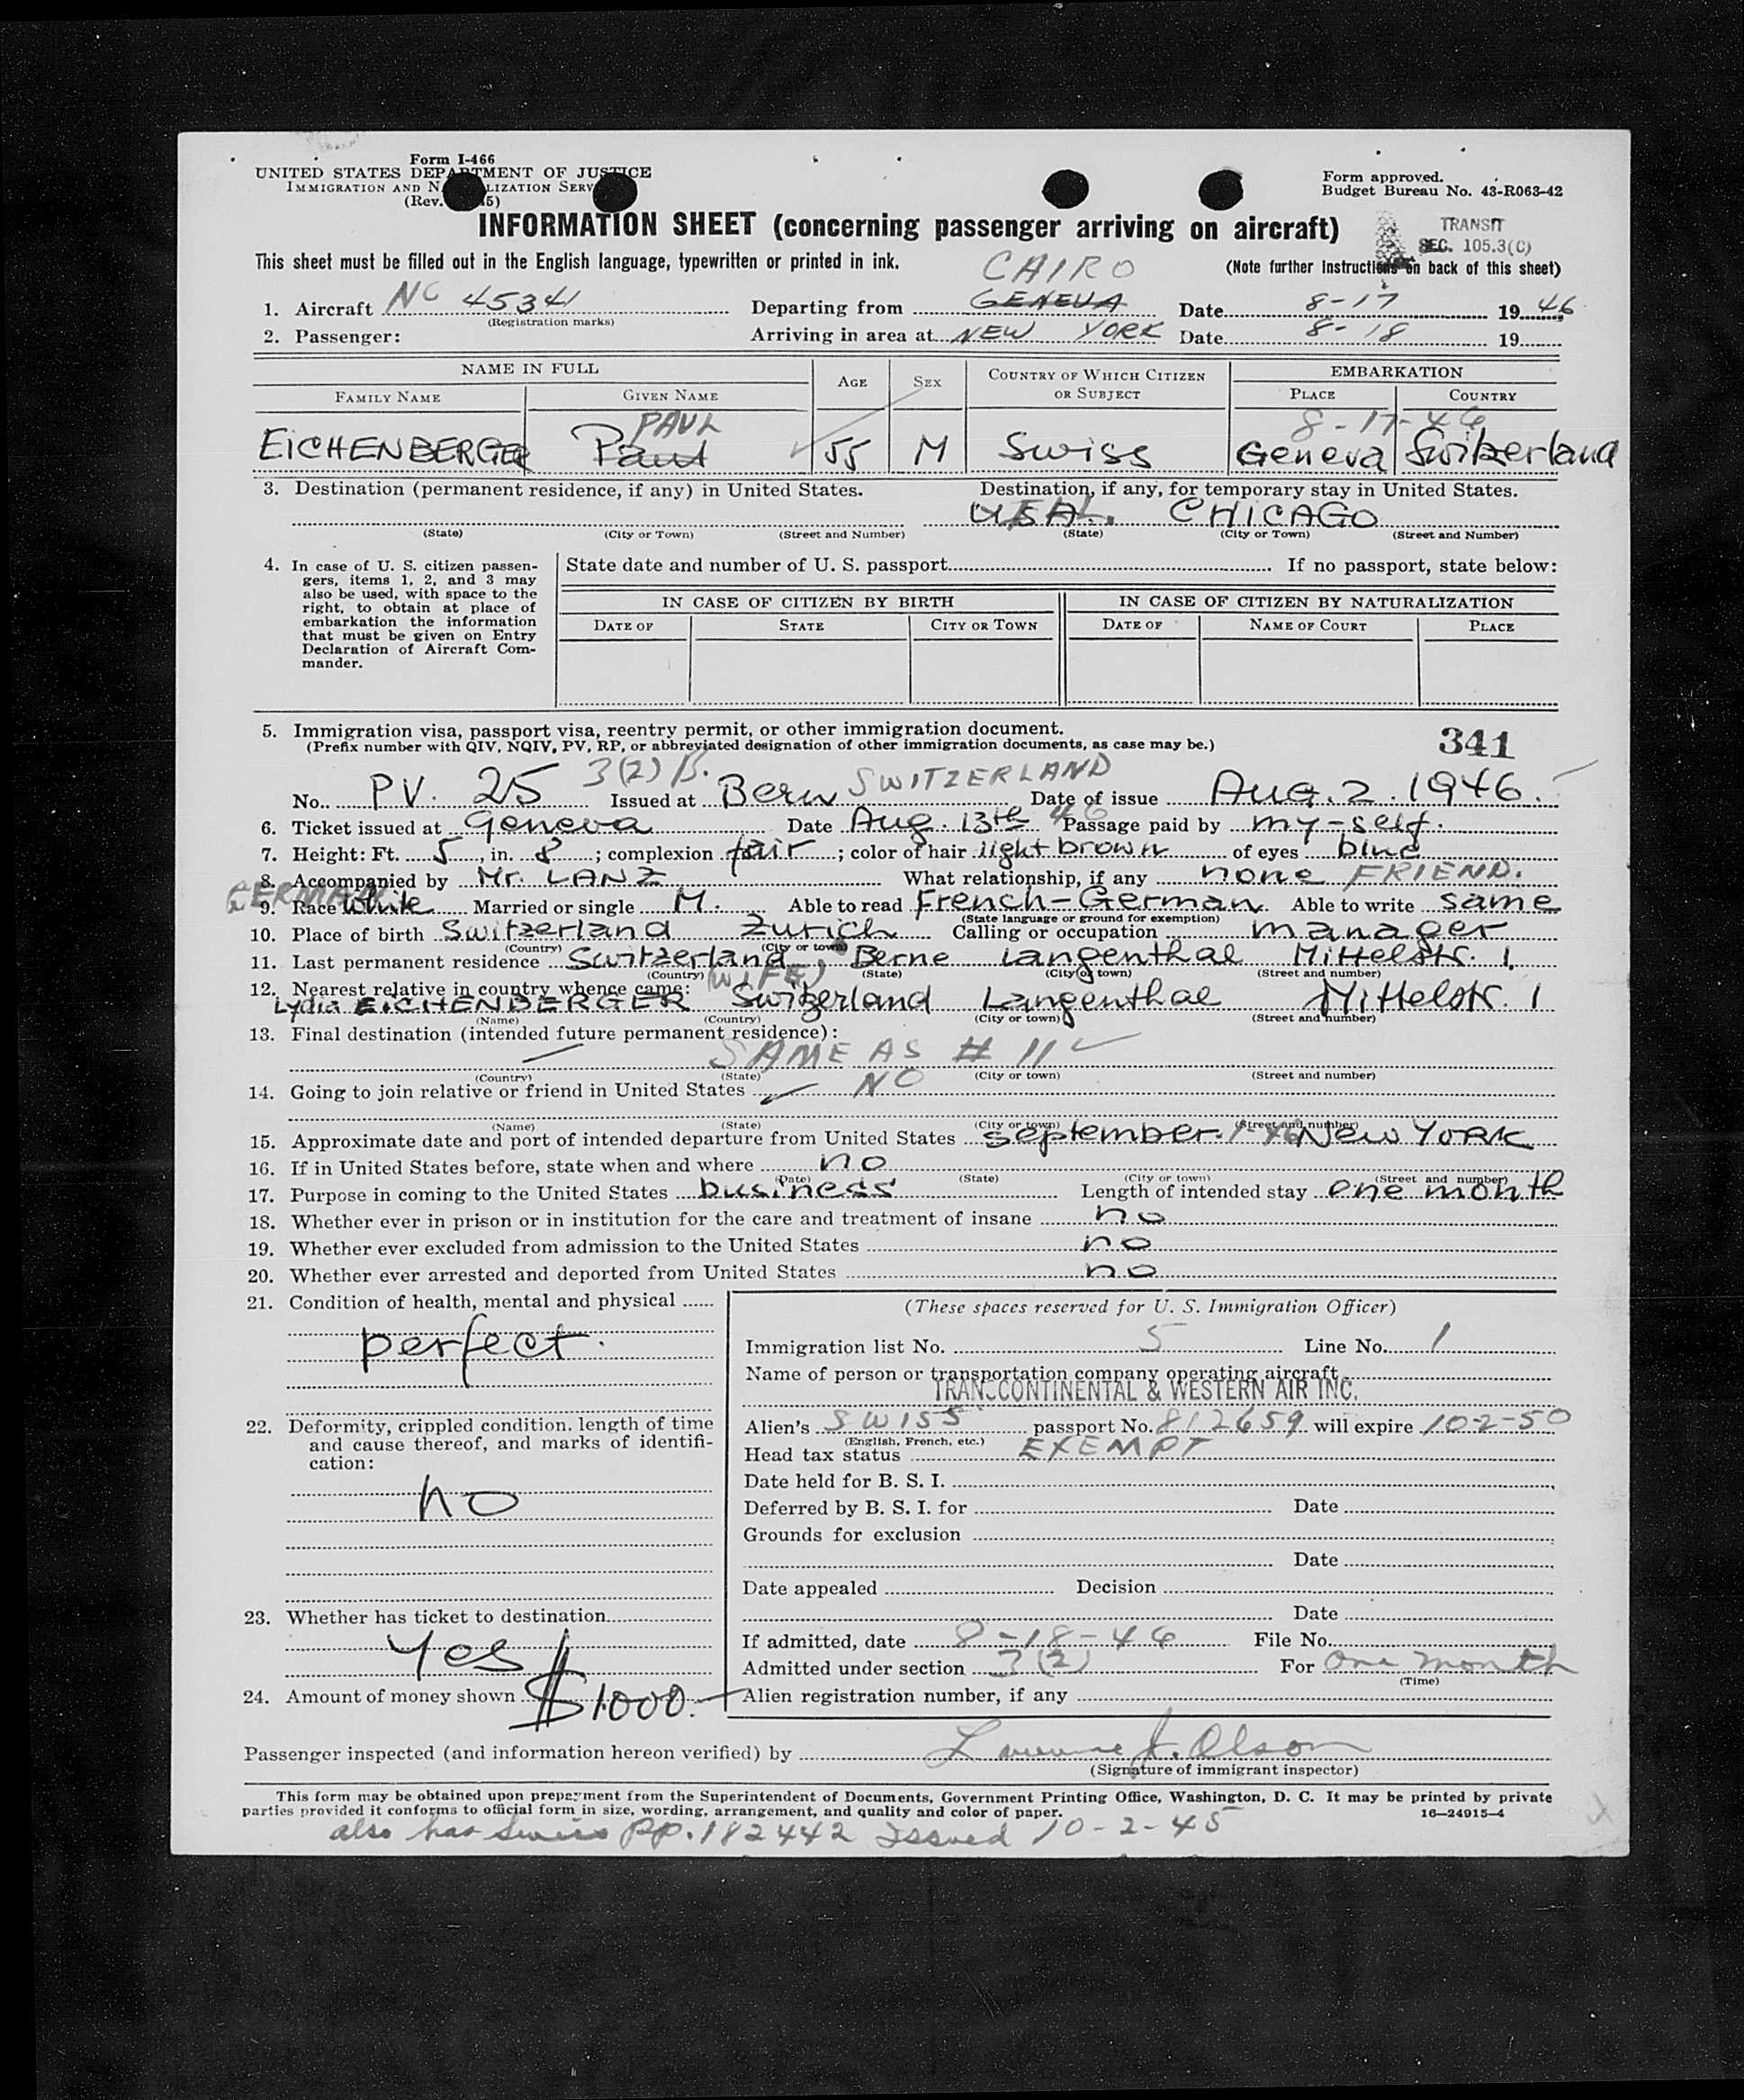 Form I-466
UNITED STATES DEPARTMENT OF JUSTICE
IMMIGRATION AND NATURALIZATION SERV
(Rev. 45)
Form approved.
Budget Bureau No. 43-R063-42
INFORMATION SHEET (concerning passenger arriving on aircraft)
TRANSIT
SEC. 105.3(C)
This sheet must be filled out in the English language, typewritten or printed in ink.
(Note further instructions on back of this sheet)
CAIRO
1. Aircraft NC 45341 Departing from GENEVA Date 8-17 1946
(Registration marks)
2. Passenger: Arriving in area at NEW YORK Date 8-18 19
NAME IN FULL AGE SEX COUNTRY OF WHICH CITIZEN OR SUBJECT EMBARKATION
FAMILY NAME GIVEN NAME PLACE COUNTRY
PAUL 8-17-46
EICHENBERGER Paul 55 M Swiss Geneva Switzerland
3. Destination (permanent residence, if any) in United States. Destination, if any, for temporary stay in United States.
USA. CHICAGO
(State) (City or Town) (Street and Number) (State) (City or Town) (Street and Number)
4. In case of U. S. citizen passengers, items 1, 2, and 3 may also be used, with space to the right, to obtain at place of embarkation the information that must be given on Entry Declaration of Aircraft Commander.
State date and number of U. S. passport If no passport, state below:
IN CASE OF CITIZEN BY BIRTH IN CASE OF CITIZEN BY NATURALIZATION
DATE OF STATE CITY OR TOWN DATE OF NAME OF COURT PLACE
5. Immigration visa, passport visa, reentry permit, or other immigration document.
(Prefix number with QIV, NQIV, PV, RP, or abbreviated designation of other immigration documents, as case may be.)
341
3(2) B.
No. PV. 25 Issued at Bern SWITZERLAND Date of issue Aug. 2. 1946.
6. Ticket issued at Geneva Date Aug. 13th 46 Passage paid by my-self.
7. Height: Ft. 5, in. 8; complexion fair; color of hair light brown of eyes blue
8. Accompanied by Mr. LANZ What relationship, if any none FRIEND.
GERMAN
9. Race White Married or single M. Able to read French-German Able to write same
(State language or ground for exemption)
10. Place of birth Switzerland Zurich Calling or occupation manager
(Country) (City or town)
11. Last permanent residence Switzerland Berne Langenthal Mittelstr. 1.
(Country) (State) (City or town) (Street and number)
12. Nearest relative in country whence came: (WIFE)
Lydia EICHENBERGER Switzerland Langenthal Mittelstr. 1
(Name) (Country) (City or town) (Street and number)
13. Final destination (intended future permanent residence):
SAME AS # 11
(Country) (State) (City or town) (Street and number)
14. Going to join relative or friend in United States NO
(Name) (State) (City or town) (Street and number)
15. Approximate date and port of intended departure from United States september. 1-46 New YORK
16. If in United States before, state when and where no
(Date) (State) (City or town) (Street and number)
17. Purpose in coming to the United States business Length of intended stay one month
18. Whether ever in prison or in institution for the care and treatment of insane no
19. Whether ever excluded from admission to the United States no
20. Whether ever arrested and deported from United States no
21. Condition of health, mental and physical
perfect.
22. Deformity, crippled condition, length of time and cause thereof, and marks of identification:
no
23. Whether has ticket to destination
Yes
24. Amount of money shown $1000.—
(These spaces reserved for U. S. Immigration Officer)
Immigration list No. 5 Line No. 1
Name of person or transportation company operating aircraft
TRANSCONTINENTAL & WESTERN AIR INC.
Alien's SWISS passport No. 812659 will expire 10-2-50
(English, French, etc.)
Head tax status EXEMPT
Date held for B. S. I.
Deferred by B. S. I. for Date
Grounds for exclusion
Date
Date appealed Decision
Date
If admitted, date 8-18-46 File No.
Admitted under section 3(2) For One month
(Time)
Alien registration number, if any
Passenger inspected (and information hereon verified) by J. Olson
(Signature of immigrant inspector)
This form may be obtained upon prepayment from the Superintendent of Documents, Government Printing Office, Washington, D. C. It may be printed by private
parties provided it conforms to official form in size, wording, arrangement, and quality and color of paper. 16—24915-4
also has Swiss PP. 182442 Issued 10-2-45